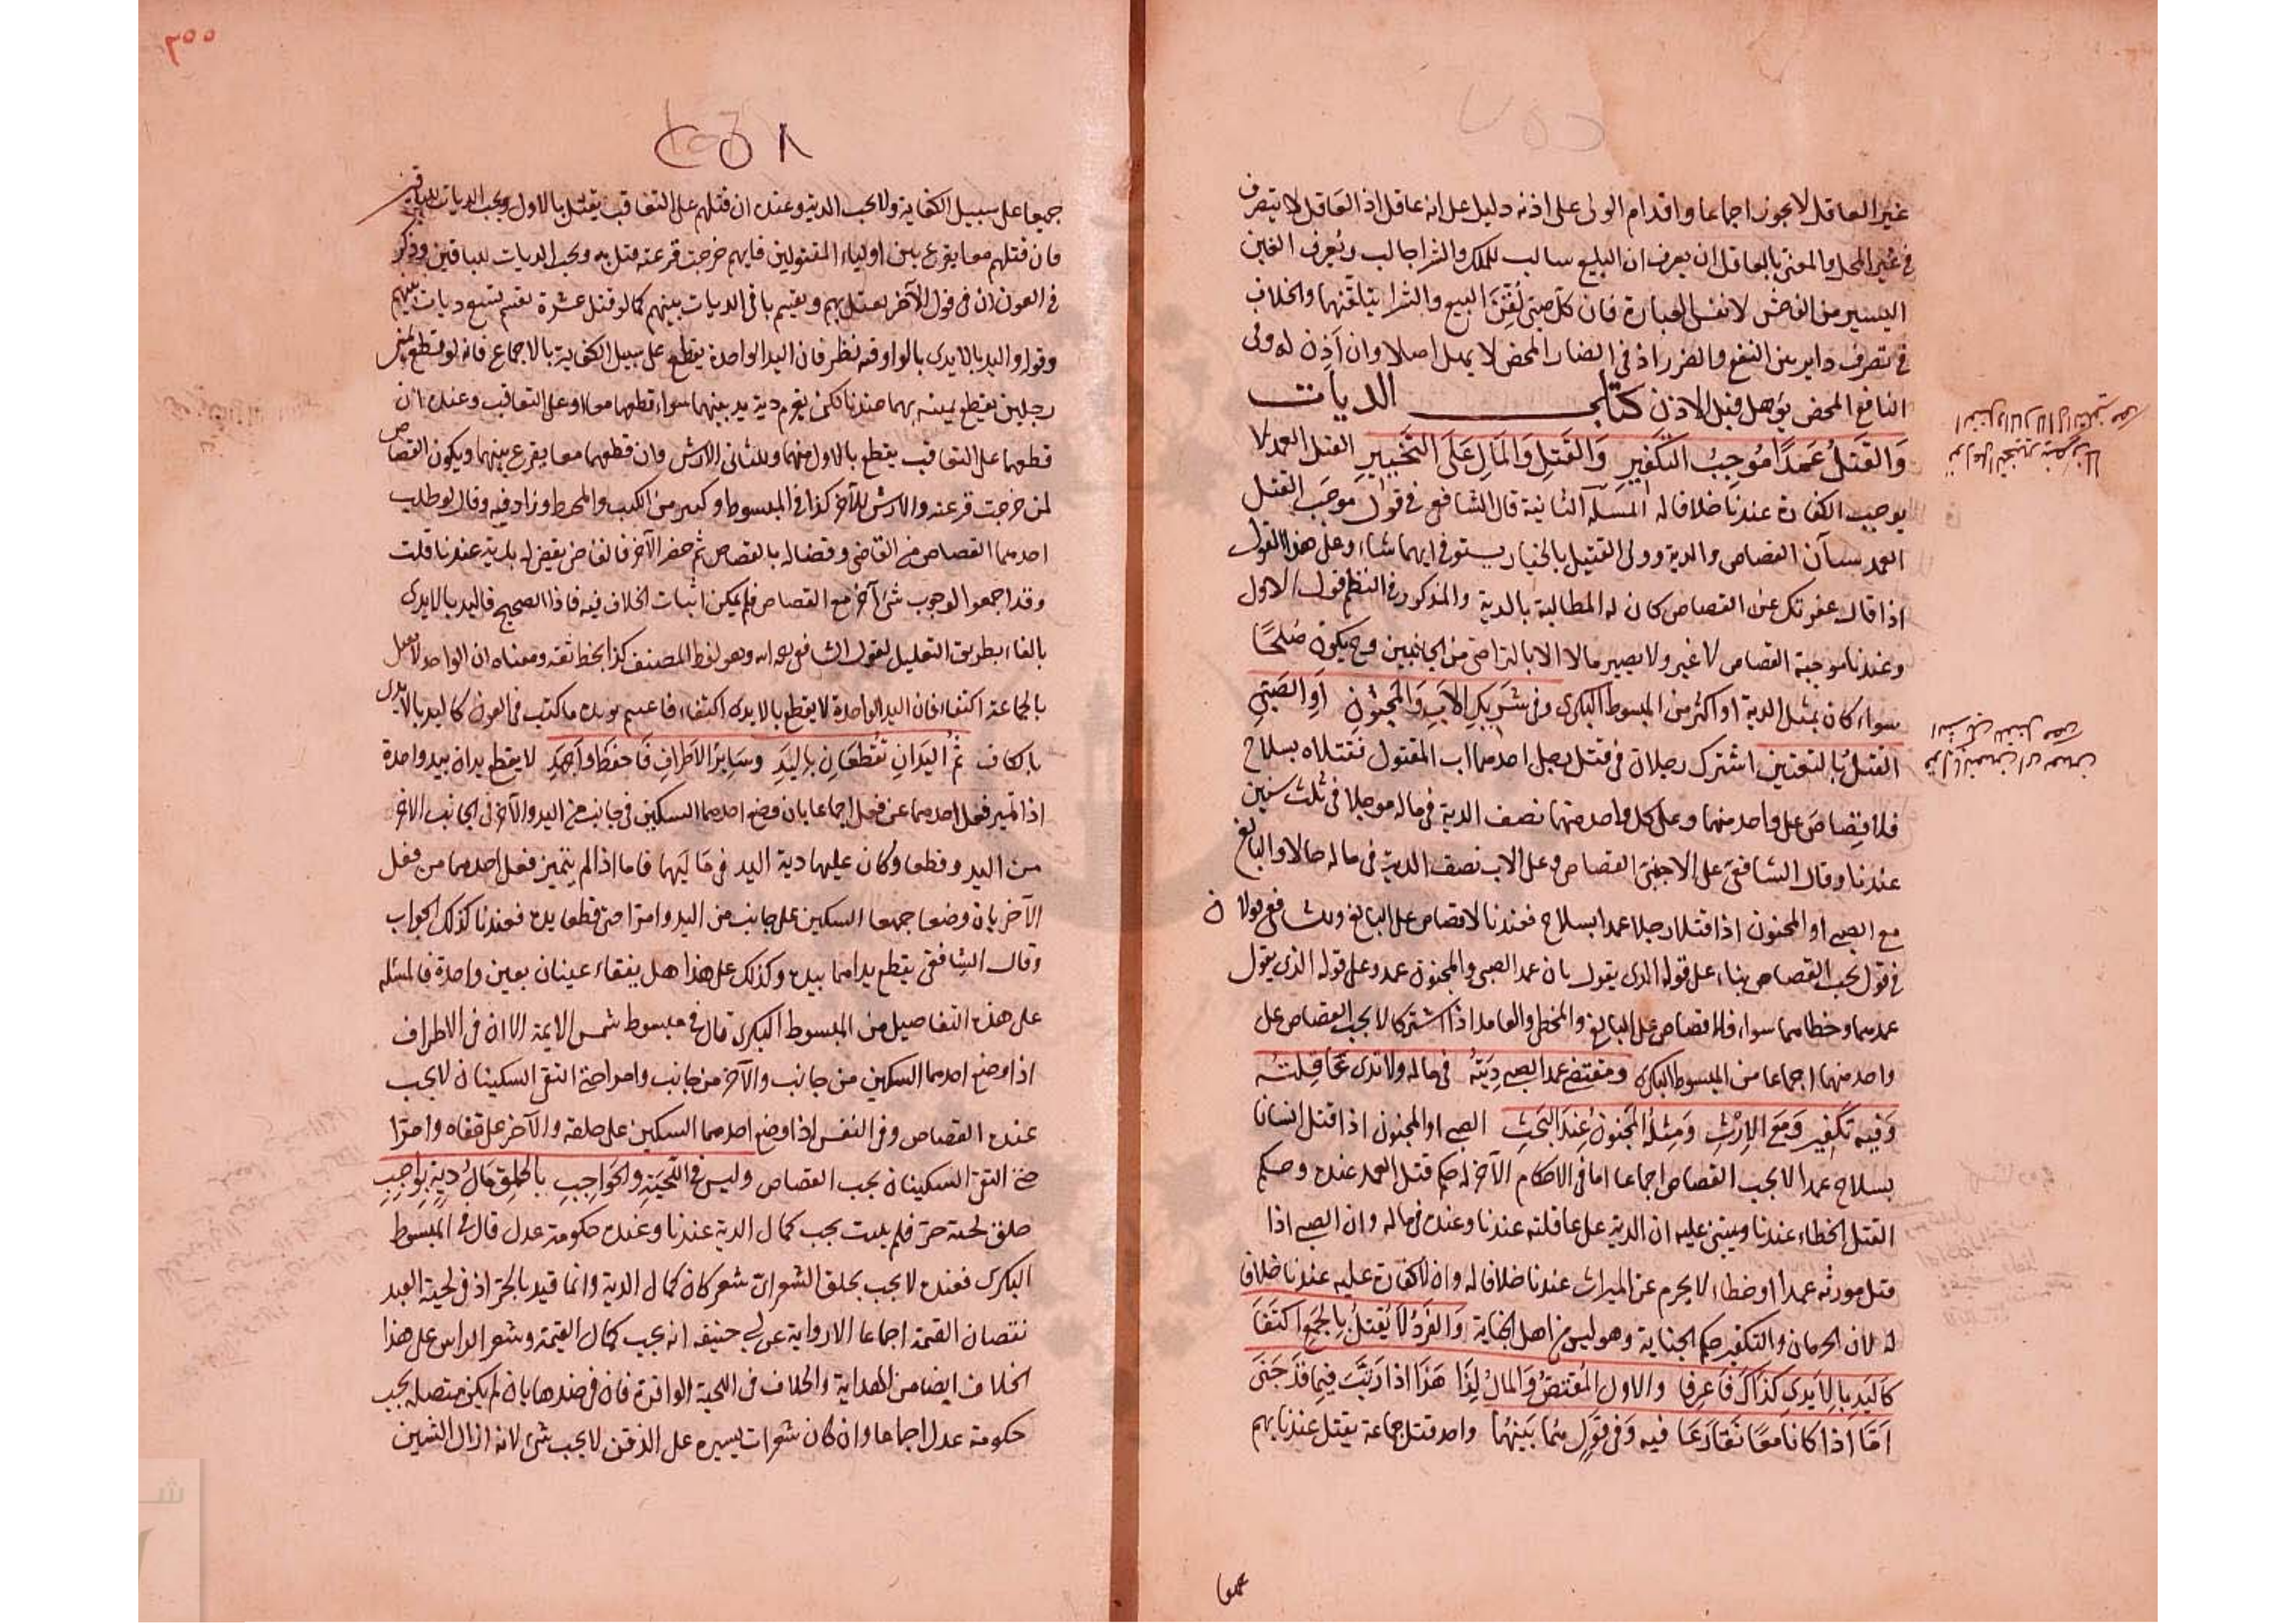 غير العاقل لا يجوز اجماعا واقدام الولى على اذنه دليل على انه عاقل اذ العاقل لا يتصرف
فى غير المحل والمعنى بالعاقل ان يعرف ان البيع سالب للملك والشرا جالب ويعرف الغبن
اليسير من الفاحش لا نفس العبارة فان كل صبى لقن البيع والشرا يتلقنهما والخلاف
فى تصرف داير بين النفع والضرر اذ فى الضار المحض لا يعمل اصلا وان اذن له وفى
النافع المحض يؤهل قبل الاذن كتاب الديات
وَالقَتلُ عَمدًا مُوجِبُ التكفيرِ وَالقَتلِ وَالمَالِ عَلَى التَخييرِ القتل العمد لا
يوجب الكفارة عندنا خلافا له المسئلة الثانية قال الشافعى فى قول موجب القتل
العمد سيآن القصاص والدية وولى القتيل بالخيار يستوفى ايهما شاء وعلى هذا القول
اذا قال عفوتك عن القصاص كان له المطالبة بالدية والمذكور فى النظم قوله الاول
وعندنا موجبة القصاص لا غير ولا يصير مالا الا بالتراضى من الجانبين وح يكون صلحًا
سواء كان بمثل الدية او اكثر من المبسوط البكرى وفى شريكِ الاَبِ وَالمَجنُونِ اَوِ الصَبِىِّ
القتلُ بالتعيين اشترك رجلان فى قتل رجل احدهما اب المقتول فقتلاه بسلاح
فلا قِصاصَ على واحد منهما وعلى كل واحد منهما نصف الدية فى ماله موجلا فى ثلث سنين
عندنا وقال الشافعىّ على الاجنبىّ القصاص وعلى الاب نصف الدية فى ماله حالا والبالغ
مع الصبى او المجنون اذا قتلا رجلا عمدا بسلاح فعندنا لا قصاص على البالغ وللشافعى قولان
فى قول يجب القصاص بناء على قوله الذى يقول بان عمد الصبى والمجنون عمد وعلى قوله الذى يقول
عمدهما وخطاهما سواء فلا قصاص على البالغ والمخطى والعامد اذا اشتركا لا يجب القصاص على
واحد منهما اجماعا من المبسوط البكرى ومقتضى عمد الصبى دِيَتُه فى ماله ولا تدى عَاقِلته
وَفيه تكفير وَمَعَ الاِرْثِ وَمِثلُهُ المَجنُونُ عِندَ البَحثِ الصبى او المجنون اذا قتل انسانا
بسلاح عمدا لا يجب القصاص اجماعا اما فى الاحكام الآخر له حكم قتل العمد عنده وحكم
القتل الخطاء عندنا ويبتنى عليه ان الدية على عاقلته عندنا وعنده فى ماله وان الصبى اذا
قتل مورثه عمدا او خطاء لا يحرم عن الميراث عندنا خلافا له وان لا كفارة عليه عندنا خلافا
له لان الحرمان والتكفير حكم الجناية وهو ليس من اهل الجناية وَالفَردُ لَا يُقتَلُ بِالجَمعِ اكتَفَا
كَاليَدِ بِالاَيدِى كَذَاكَ فَاعرِفا والاول المُقتصُّ وَالمالُ لِذَا هَذَا اذا رَتَّبَ فيما قد جَنَى
اَمَّا اذا كَانَا مَعًا تَقَارَعَا فيه وَفى قَولٍ هُمَا بَينَهُمَا واحد قتل جماعة يقتل عندنا بهم
جميعا
٢٥٥
٢٥٨
جميعا على سبيل الكفاية ولا يجب الدية وعنده ان قتلهم على التعاقب يقتل بالاول ويجب الديات للباقين
فان قتلهم معا يقرع بين اولياء المقتولين فايهم خرجت قرعته قتل به ويجب الديات للباقين وذكر
فى العون ان فى قول الآخر يقتل بهم ويقسم باقى الديات بينهم كما لو قتل عشرة يقسم تسع ديات بينهم
وقوله واليد بالايدى بالواو فيه نظر فان اليد الواحدة يقطع على سبيل الكفاية بالاجماع فانه لو قطع يمنى
رجلين يقطع يمينه بهما عندنا لكن يغرم دية يد بينهما سواء قطعهما معا او على التعاقب وعنده ان
قطعهما على التعاقب يقطع بالاول منهما وللثانى الارش وان قطعهما معا يقرع بينهما ويكون القصاص
لمن خرجت قرعته والارش للآخر كذا فى المبسوط وكثير من الكتب والمحيط وزاد فيه وقال لو طلب
احدهما القصاص من القاضى وقضا له بالقصاص ثم حضر الآخر فالقاضى يقضى له بالدية عندنا قلت
وقد اجمعوا لوجوب شى آخر مع القصاص فلم يمكن اثبات الخلاف فيه فاذا الصحيح فاليد بالايدى
بالفاء بطريق التعليل لقول الشافعى رحمه الله وهو لفظ المصنف كذا بخط ثقة ومعناه ان الواحد لا يقتل
بالجماعة اكتفاء فان اليد الواحدة لا يقطع بالايدى اكتفاء فاعلم يوبده ما كتب فى العون كاليد بالايدى
بالكاف ثُم اليَدَانِ تُقطَعَانِ بِاليَدِ وسَائِرُ الاَطرافِ فَاحفظ واَجهِدِ لا يقطع يدان بيد واحدة
اذا تميز فعل احدهما عن فعل اجماعا بان وضع احدهما السكين فى جانب من اليد والآخر فى الجانب الآخر
من اليد وقطعا وكان عليهما دية اليد فى مَاليهما فاما اذا لم يتميز فعل احدهما من فعل
الآخر بان وضعا جميعا السكين على جانب من اليد وامرّا حتى قطعا يده فعندنا كذلك الجواب
وقال الشافعى يقطع يداهما بيده وكذلك على هذا هل يفقاء عينان بعين واحدة فالمسئلة
على هذه التفاصيل من المبسوط البكرى قال فى مبسوط شمس الايمة الا ان فى الاطراف
اذا وضع احدهما السكين من جانب والآخر من جانب وامرا حتى التقى السكينان لا يجب
عنده القصاص وفى النفس اذا وضع احدهما السكين على حلقه والآخر على قفاه وامرّا
حتى التقى السكينان يجب القصاص وليس فى اللّحيَةِ وَالحَواجِبِ بالحلقِ كمَالُ ديةٍ بِوَاجِبِ
حلق لحية حرّ فلم ينبت يجب كمال الدية عندنا وعنده حكومة عدل قال فى المبسوط
البكرى فعنده لا يجب بحلق الشعر اىّ شعر كان كمال الدية وانما قيد بالحرّ اذ فى لحية العبد
نقصان القيمة اجماعا الا رواية عن ابى حنيفه انه يجب كمال القيمة وشعر الراس على هذا
الخلاف ايضا من الهداية والخلاف فى اللحية الوافرة فان فى ضدها بان لم يكن متصلة يجب
حكومة عدل اجماعا وان كان شعرات يسيره على الذقن لا يجب شى لانه ازال الشين